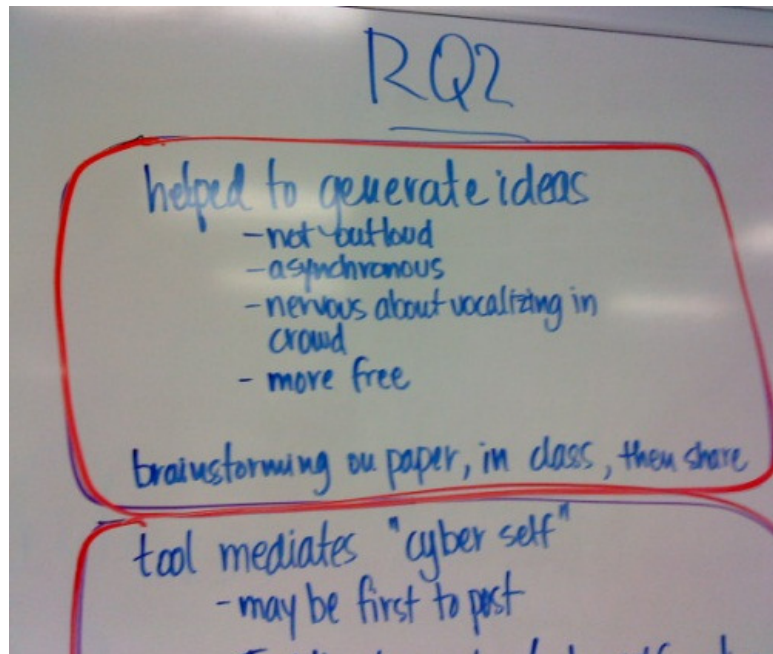 RQ2
helped to generate ideas
- not outloud
- asynchronous
- nervous about vocalizing in
crowd
- more free
brainstorming on paper, in class, then share
tool mediates "cyber self"
- may be first to post